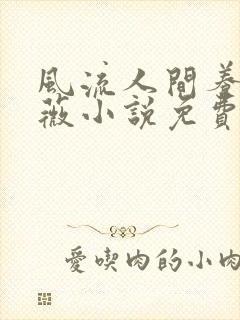 風流人間養
薇小說免費
愛喫肉的小肉